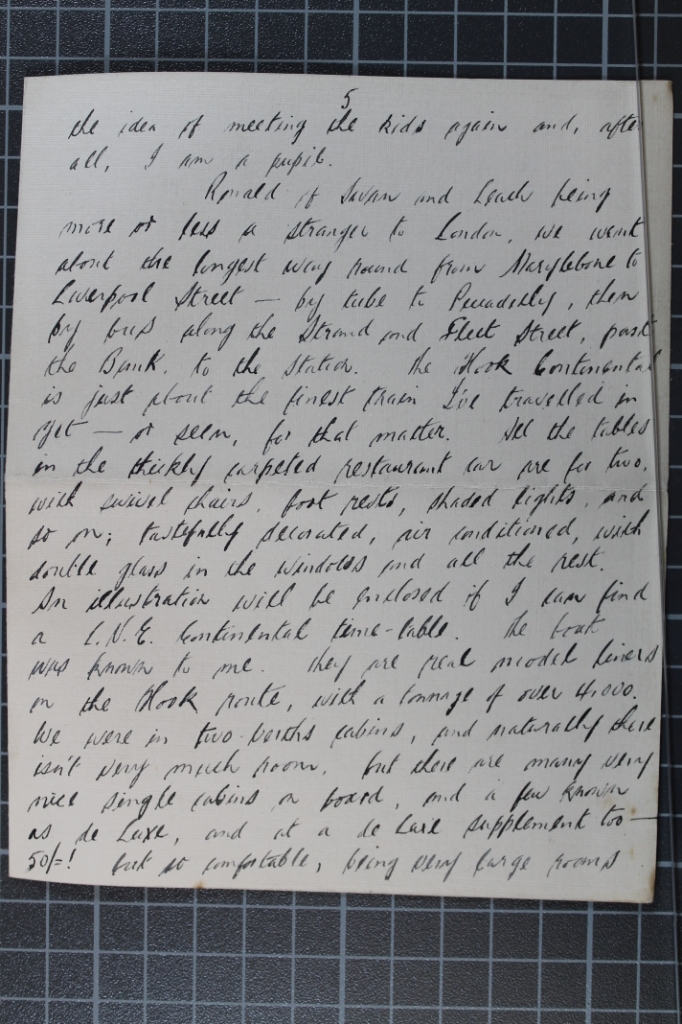 5
the idea of meeting the kids again and, after
all, I am a pupil.
Ronald of Swan and Leach being
more or less a stranger to London, we went
about the longest way round from Marylebone to
Liverpool Street — by tube to Piccadilly, then
by bus along the Strand and Fleet Street, past
the Bank, to the station. The Hook Continental
is just about the finest train I've travelled in
yet — or seen, for that matter. All the tables
in the thickly carpeted restaurant car are for two,
with swivel chairs, foot rests, shaded lights, and
so on; tastefully decorated, air conditioned, with
double glass in the windows and all the rest.
An illustration will be enclosed if I can find
a L.N.E. Continental time-table. The boat
was known to me. They are real model liners
on the Hook route, with a tonnage of over 4,000.
We were in two-berths cabins, and naturally there
isn't very much room, but there are many very
nice single cabins on board, and a few known
as de Luxe, and at a de Luxe supplement too —
50/=! but so comfortable, being very large rooms